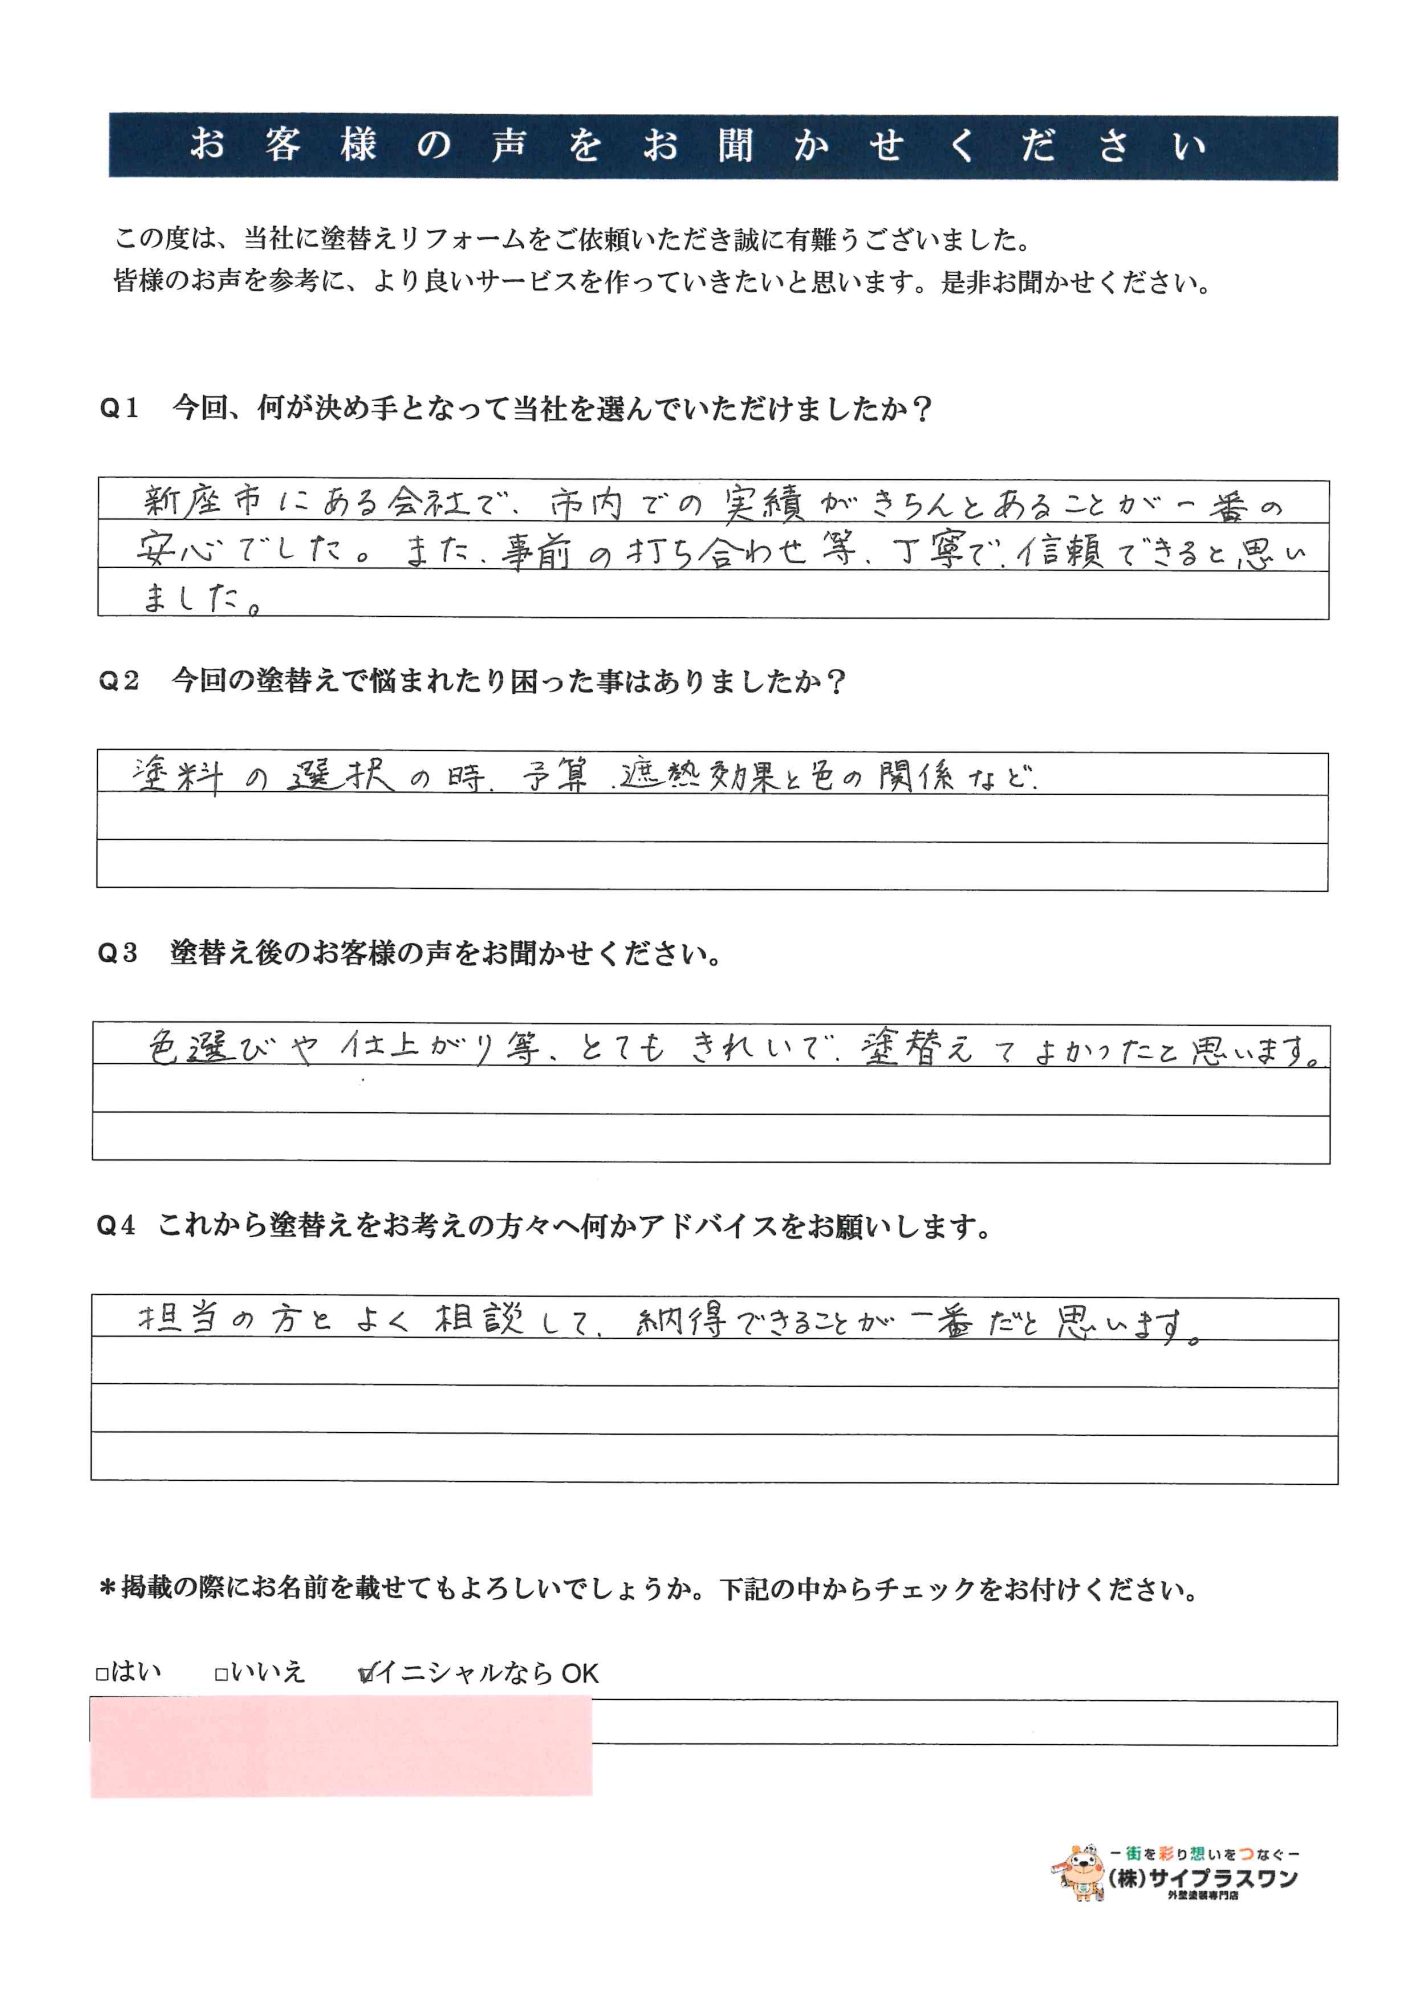 お客様の声をお聞かせください
この度は、当社に塗替えリフォームをご依頼いただき誠に有難うございました。
皆様のお声を参考に、より良いサービスを作っていきたいと思います。是非お聞かせください。
Q1 今回、何が決め手となって当社を選んでいただけましたか？
新座市にある会社で、市内での実績がきちんとあることが一番の
安心でした。また、事前の打ち合わせ等、丁寧で、信頼できると思い
ました。
Q2 今回の塗替えで悩まれたり困った事はありましたか？
塗料の選択の時、予算、遮熱効果と色の関係など、
Q3 塗替え後のお客様の声をお聞かせください。
色選びや仕上がり等、とてもきれいで、塗替えてよかったと思います。
Q4 これから塗替えをお考えの方々へ何かアドバイスをお願いします。
担当の方とよく相談して、納得できることが一番だと思います。
＊掲載の際にお名前を載せてもよろしいでしょうか。下記の中からチェックをお付けください。
□はい □いいえ ☑イニシャルならOK
ー街を彩り想いをつなぐー
(株)サイプラスワン
外壁塗装専門店